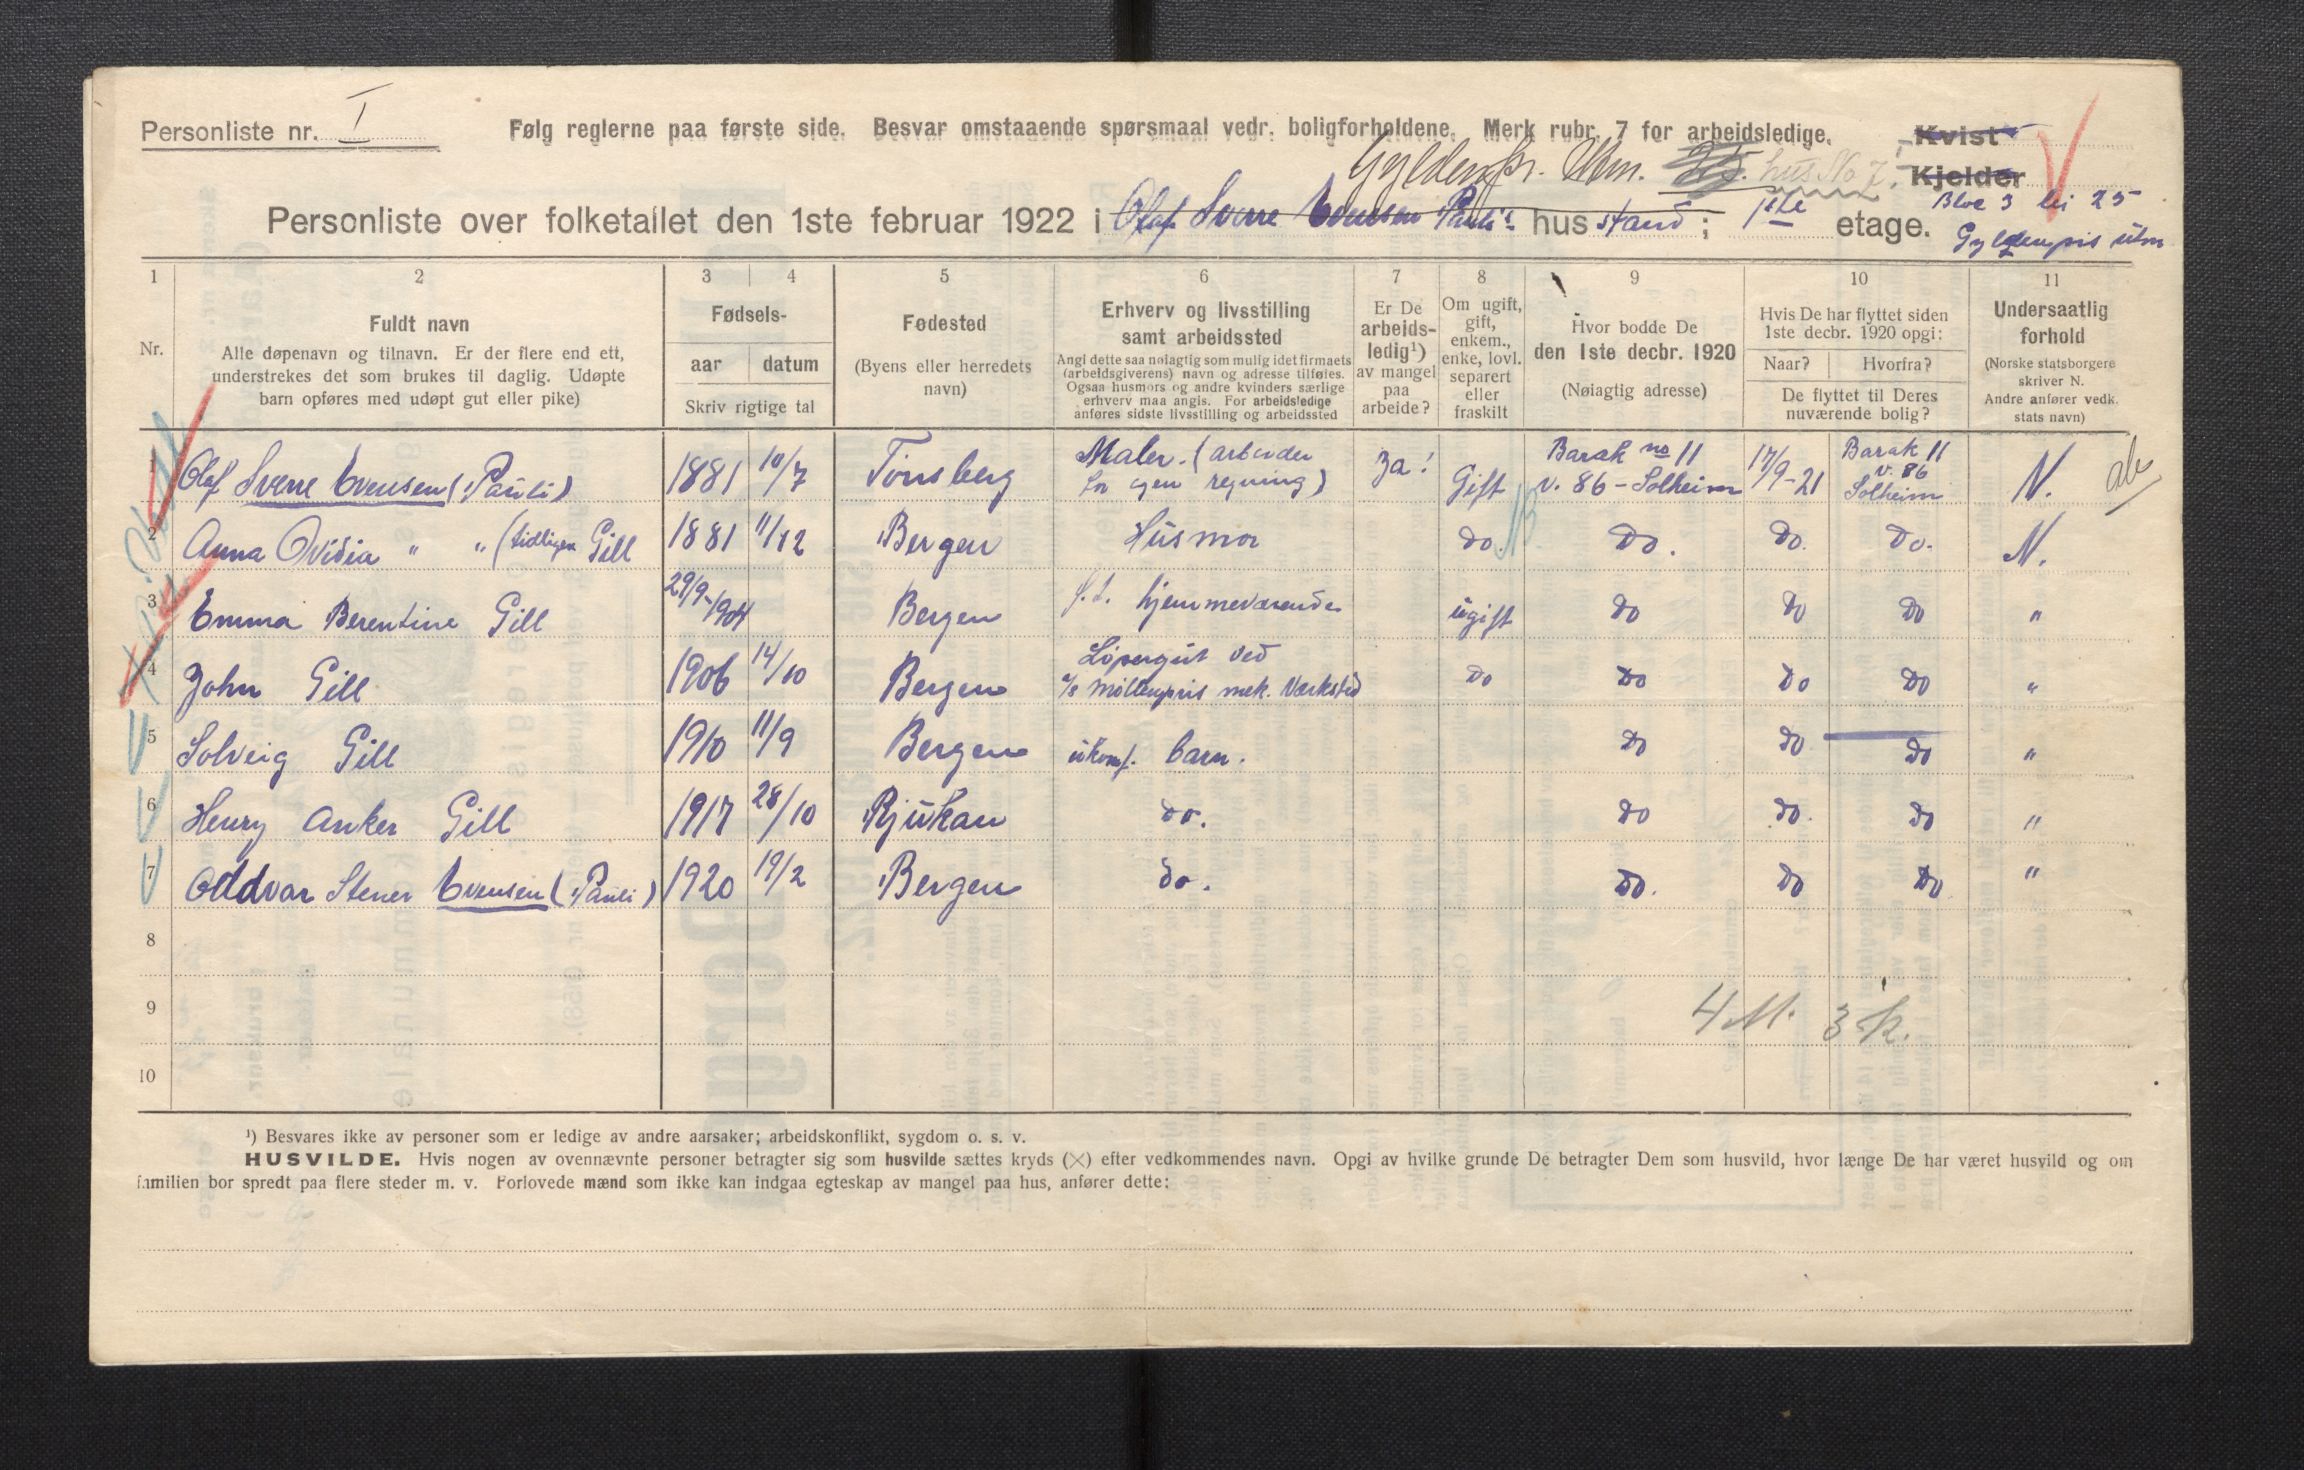 Personliste nr. I
Følg reglerne paa første side. Besvar omstaaende spørsmaal vedr. boligforholdene. Merk rubr. 7 for arbeidsledige.
Kvist
Kjelder
Gyldenpr. Alm. 25. hus No 7.
Personliste over folketallet den 1ste februar 1922 i Olaf Sverre Evensen Pauli's husstand; 1ste etage.
Bloc 3 lei 25
Gyldenpris alm
1 2 3 4 5 6 7 8 9 10 11
Nr.
Fuldt navn
Alle døpenavn og tilnavn. Er der flere end ett,
understrekes det som brukes til daglig. Udøpte
barn opføres med udøpt gut eller pike)
Fødsels-
aar datum
Skriv rigtige tal
Fødested
(Byens eller herredets
navn)
Erhverv og livsstilling
samt arbeidssted
Angi dette saa nøiagtig som mulig idet firmaets
(arbeidsgiverens) navn og adresse tilføies.
Ogsaa husmors og andre kvinders særlige
erhverv maa angis. For arbeidsledige
anføres sidste livsstilling og arbeidssted
Er De
arbeids-
ledig¹)
av mangel
paa
arbeide?
Om ugift,
gift,
enkem.,
enke, lovl.
separert
eller
fraskilt
Hvor bodde De
den 1ste decbr. 1920
(Nøiagtig adresse)
Hvis De har flyttet siden
1ste decbr. 1920 opgi:
Naar? Hvorfra?
De flyttet til Deres
nuværende bolig?
Undersaatlig
forhold
(Norske statsborgere
skriver N.
Andre anfører vedk.
stats navn)
1 Olaf Sverre Evensen (Pauli) 1881 10/7 Tønsberg Maler. (arbeider for egen regning) Ja! Gift Barak no 11 v. 86 - Solheim 17/9-21 Barak 11 v. 86 Solheim N.
2 Anna Ovidia " " (tidligere Gill 1881 11/12 Bergen Husmor do. Do. Do. Do. N.
3 Emma Berentine Gill 29/9-1904 Bergen f.t. hjemmeværende ugift Do Do Do "
4 John Gill 1906 14/10 Bergen Løpergut ved a/s Møllenpris mek. Værksted Do Do Do Do "
5 Solveig Gill 1910 11/9 Bergen ukonf. barn. Do Do Do "
6 Henry Anker Gill 1917 28/10 Rjukan do. Do Do. Do "
7 Oddvar Stener Evensen (Pauli) 1920 19/2 Bergen do. Do. Do Do "
8
9
4 M. 3 K.
10
¹) Besvares ikke av personer som er ledige av andre aarsaker; arbeidskonflikt, sygdom o. s. v.
HUSVILDE. Hvis nogen av ovennævnte personer betragter sig som husvilde sættes kryds (×) efter vedkommendes navn. Opgi av hvilke grunde De betragter Dem som husvild, hvor længe De har været husvild og om
familien bor spredt paa flere steder m. v. Forlovede mænd som ikke kan indgaa egteskap av mangel paa hus, anfører dette: